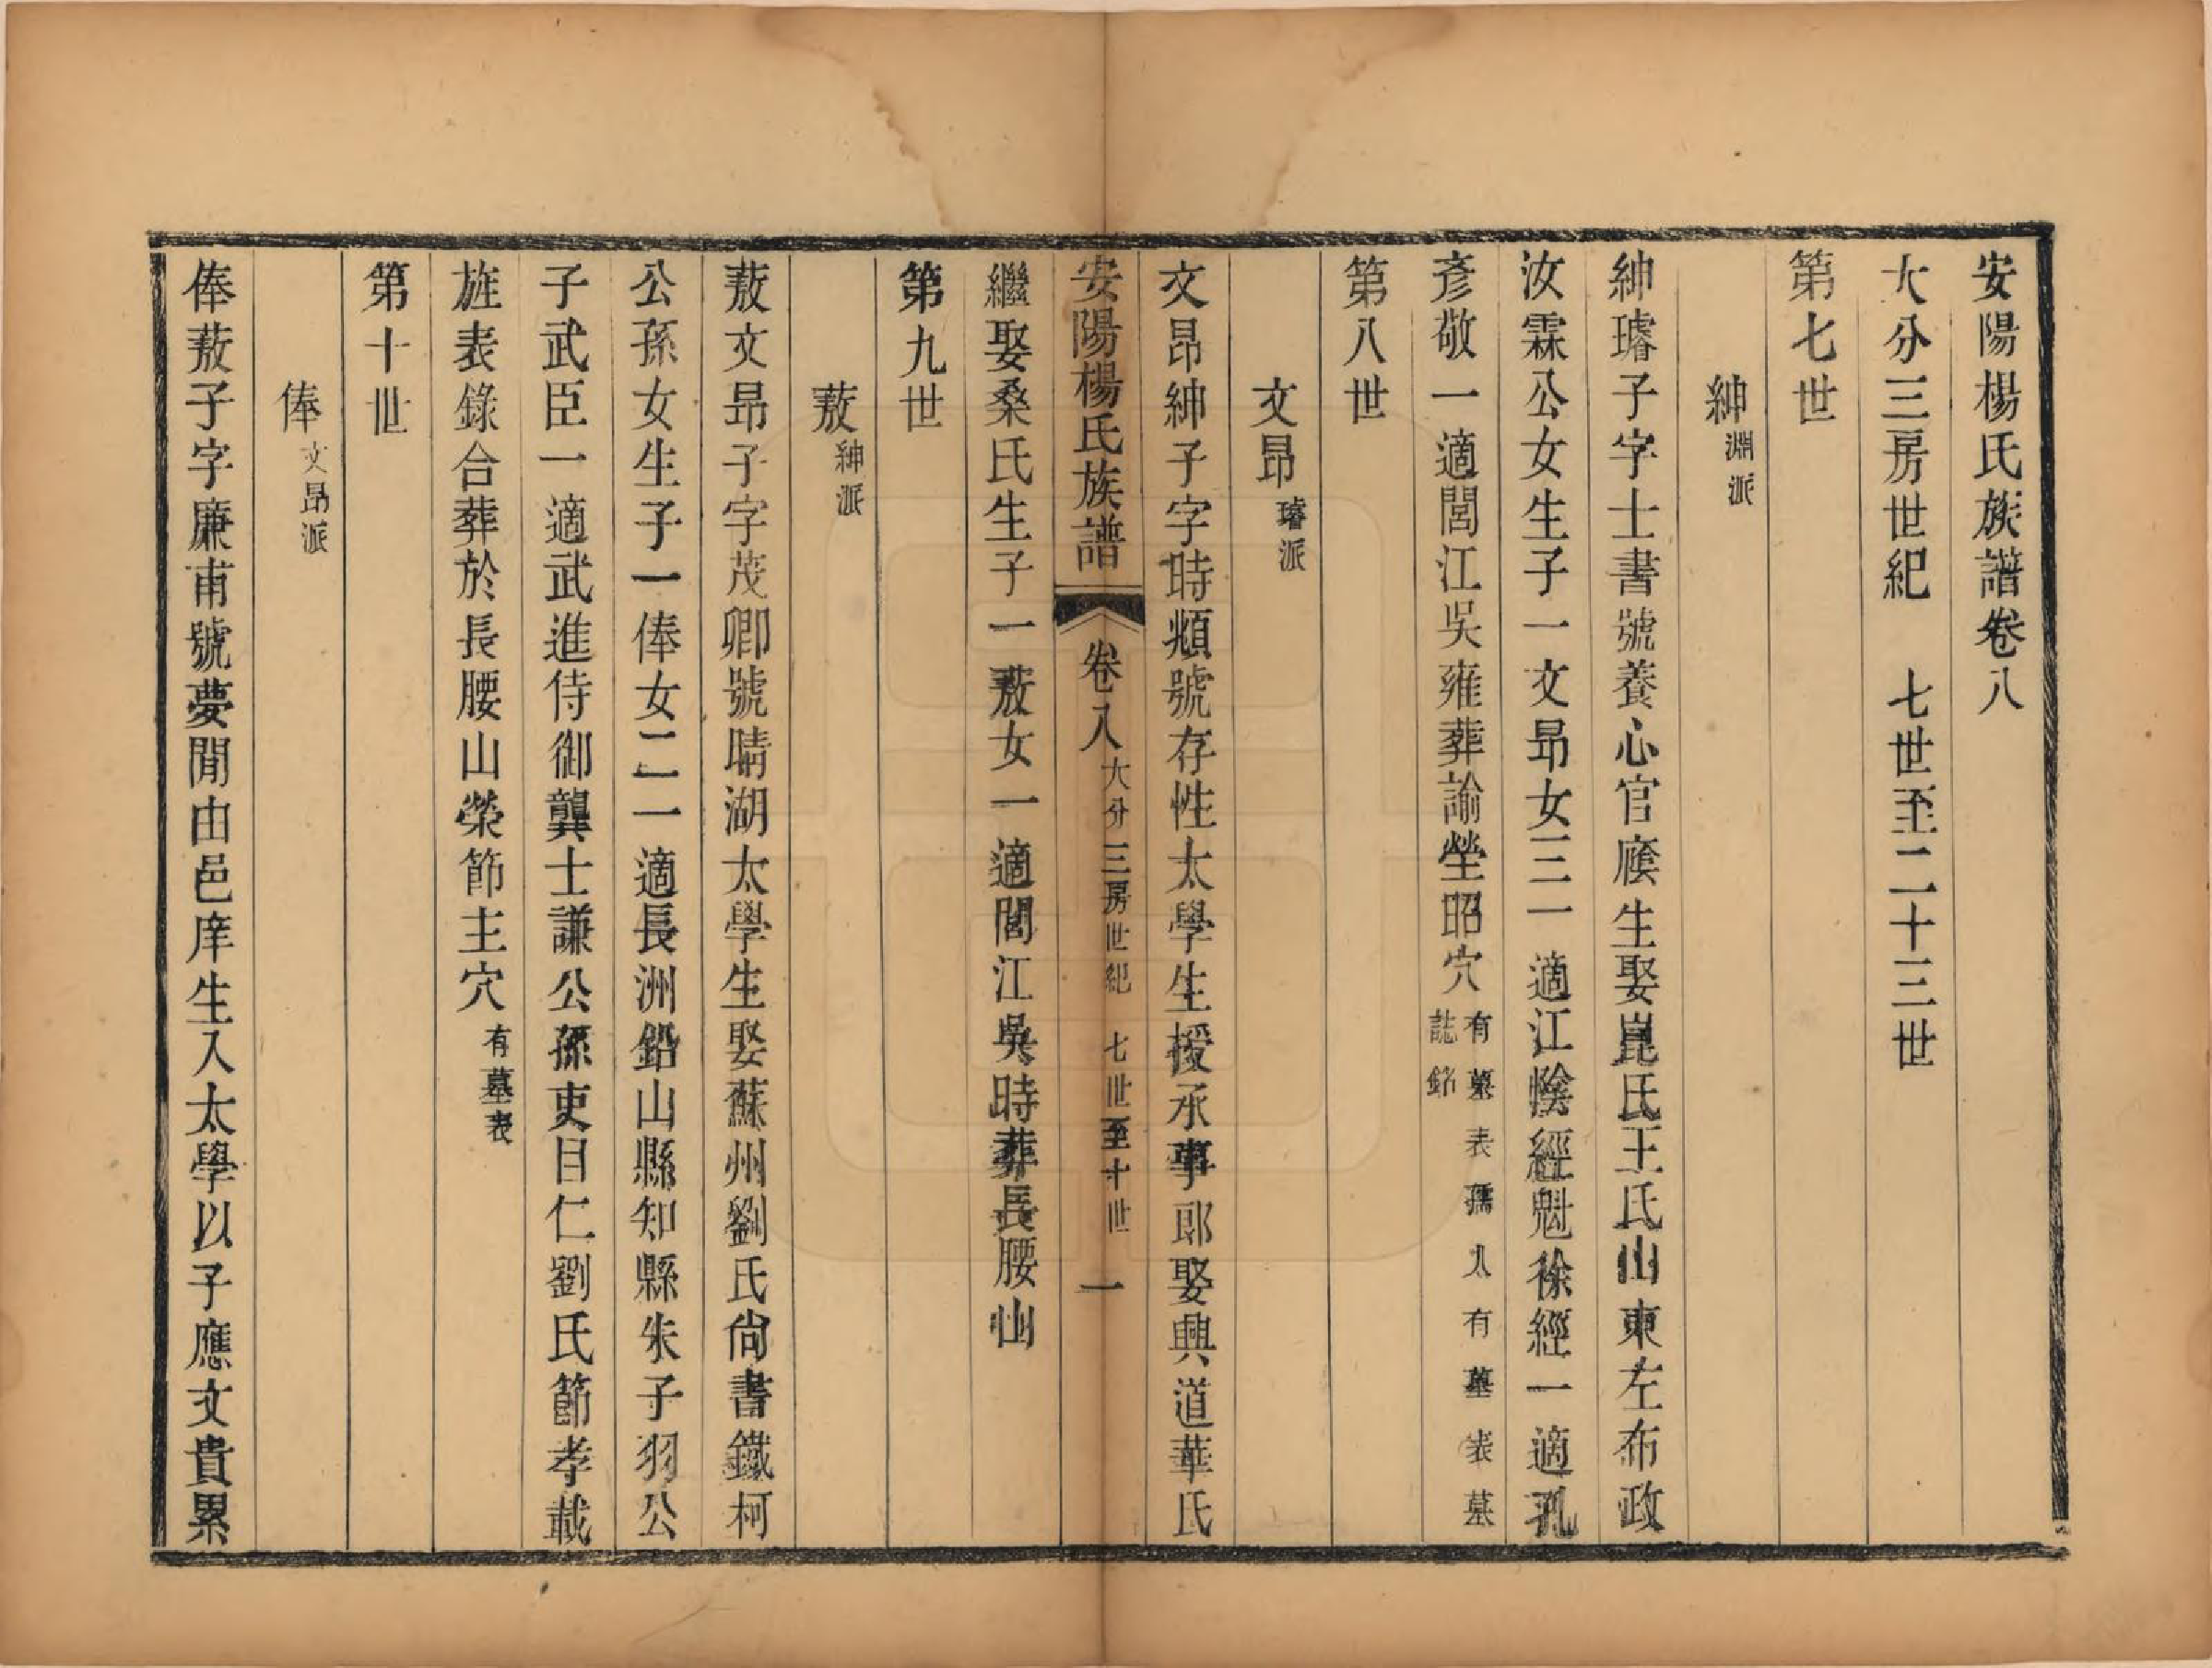 安陽楊氏族譜卷八
大分三房世紀　七世至二十三世
第七世
紳淵派
紳璿子字士書號養心官廩生娶嵬氏王氏山東左布政
汝霖公女生子一文昂女三一適江陰經魁徐經一適孔
彥敬一適閭江吳雍葬諭塋昭穴有墓表孺人有墓表墓誌銘
第八世
文昂璿派
文昂紳子字時頫號存性太學生授承事郎娶興道華氏
安陽楊氏族譜　卷八大分三房世紀　七世至十世　一
繼娶桑氏生子一菽女一適閭江吳時葬長腰山
第九世
菽紳派
菽文昂子字茂卿號晴湖太學生娶蘇州劉氏尚書鐵柯
公孫女生子一俸女二一適長洲鉛山縣知縣朱子羽公
子武臣一適武進侍御龔士謙公孫吏目仁劉氏節孝載
旌表錄合葬於長腰山榮節主穴有墓表
第十世
俸文昂派
俸菽子字廉甫號夢閒由邑庠生入太學以子應文貴累